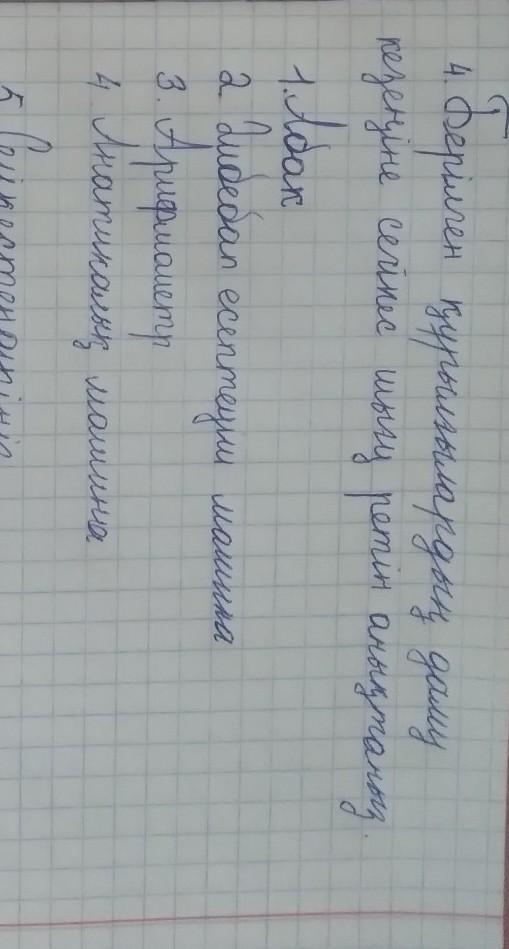 4. Берілген құрылғылардың даму
кезеңіне сәйкес шығу ретін анықтаңыз.
1. Абак
2. Әмбебап есептеуш машина
3. Арифмометр
4. Анатикалық машина
5. Сәйкестендіріңіз